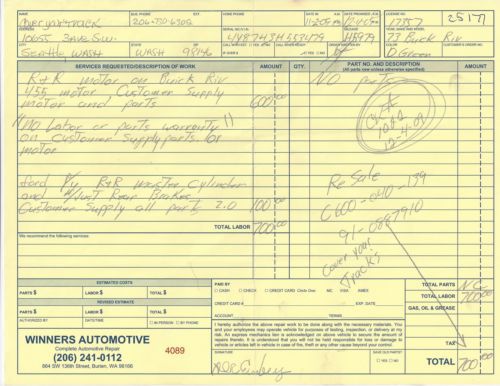 NAME BUSINESS PHONE EXT. HOME PHONE DATE IN A.M. P.M. DATE OUT LICENSE NO. MILEAGE
Cover your track 206-730-6302 17357 25171
10655 3 Ave S.W. 4487H3H553479 H5979 73 Buick Riv
CITY STATE ZIP COLOR CUSTOMER'S ORDER NO.
Seattle WASH WASH 98146 D Green
SERVICES REQUESTED/DESCRIPTION OF WORK AMOUNT QTY. PART NO. AND DESCRIPTION AMOUNT
(All parts new unless otherwise specified)
R+R motor on Buick Riv NO parts
455 motor Customer Supply
motor and parts 600.00
"no Labor or parts warranty"
on Customer Supply parts for
motor
12-4-09
Ford P/U R+R master Cylinder
and Adjust Rear Brakes
Customer Supply all parts 2.0 100.00
Re Sale
C600-040-139
91-0887910
Cover your
Tracks
TOTAL LABOR 700.00
We recommend the following services
ESTIMATED COSTS
PARTS $ LABOR $ TOTAL $
REVISED ESTIMATE
PARTS $ LABOR $ TOTAL $
AUTHORIZED BY DATE/TIME IN PERSON BY PHONE
PAID BY
CASH CHECK CREDIT CARD Circle One MC VISA AMEX
CREDIT CARD # EXP. DATE
ACCOUNT TERMS
TOTAL PARTS NC
TOTAL LABOR 700.00
GAS, OIL & GREASE
TAX
TOTAL 700.00
WINNERS AUTOMOTIVE
Complete Automotive Repair
(206) 241-0112
864 SW 136th Street, Burien, WA 98166
4089
I hereby authorize the above repair work to be done along with the necessary materials. You and your employees may operate vehicle for purposes of testing, inspection, or delivery at my risk. An express mechanics lien is acknowledged on above vehicle to secure the amount of repairs thereto. It is understood that you will not be held responsible for loss or damage to vehicle or articles left in vehicle in case of fire, theft or any other cause beyond your control.
SIGNATURE SAVE OLD PARTS?
YES NO